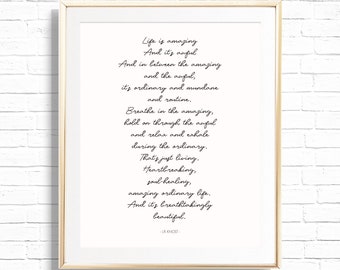 Life is amazing
And it's awful
And in between the amazing
and the awful,
it's ordinary and mundane
and routine,
Breathe in the amazing,
hold on through the awful
and relax and exhale
during the ordinary,
That's just living,
Heartbreaking,
soul-healing,
amazing ordinary life,
And it's breathtakingly
beautiful.